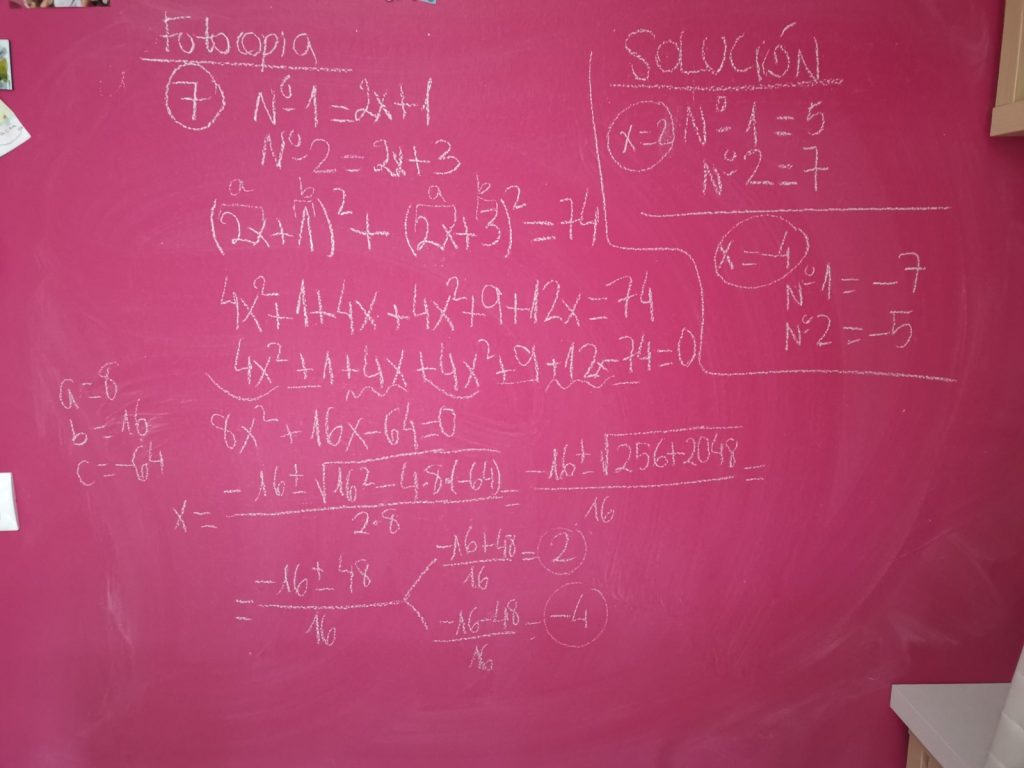 Fotocopia
7 Nº1 = 2x+1
Nº2 = 2x+3
a b a b
(2x+1)² + (2x+3)² = 74
4x²+1+4x+4x²+9+12x=74
4x²+1+4x+4x²+9+12x-74=0
a=8
b=16
c=-64
8x²+16x-64=0
x = (-16±√(16²-4·8·(-64)))/(2·8) = (-16±√(256+2048))/16 =
= (-16±48)/16
(-16+48)/16 = 2
(-16-48)/16 = -4
SOLUCIÓN
x=2 Nº1 = 5
Nº2 = 7
x=-4
Nº1 = -7
Nº2 = -5